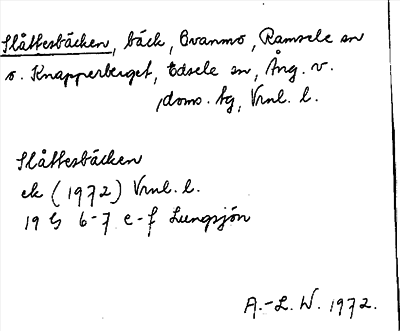 Slåttesbäcken, bäck, Evanmo, Ramsele sn
o. Knapperberget, Edsele sn, Ång. v.
doms. hg, Vrnl. l.
Slåttesbäcken
ek (1972) Vrnl. l.
19 G 6-7 e-f Lungsjön
A.-L. W. 1972.